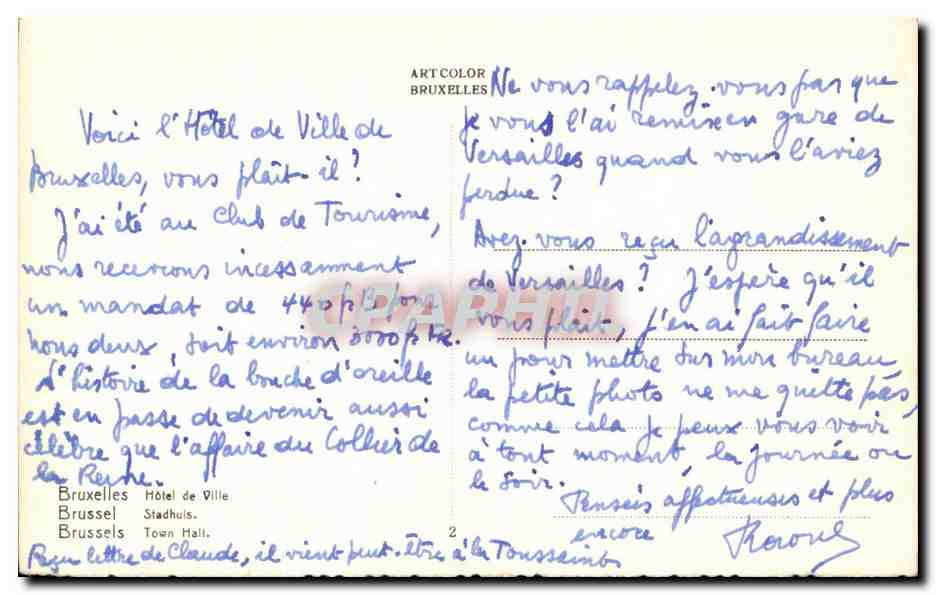 ARTCOLOR
BRUXELLES
Voici l'Hôtel de Ville de
Bruxelles, vous plaît-il?
J'ai été au Club de Tourisme,
nous recevons incessamment
un mandat de 440 f B pour
nous deux, soit environ 3000 f
L'histoire de la bouche d'oreille
est en passe de devenir aussi
célèbre que l'affaire du Collier de
la Reine.
Bruxelles Hôtel de Ville
Brussel Stadhuis.
Brussels Town Hall.
2
Reçu lettre de Claude, il vient peut-être à la Toussaint
Ne vous rappelez-vous pas que
je vous l'ai remise en gare de
Versailles quand vous l'aviez
perdue?
Avez-vous reçu l'agrandissement
de Versailles? J'espère qu'il
vous plait, j'en ai fait faire
un pour mettre sur mon bureau,
la petite photo ne me quitte pas,
comme cela je peux vous voir
à tout moment, la journée ou
le soir.
Pensées affectueuses et plus
encore
Raoul
CPAPHIL